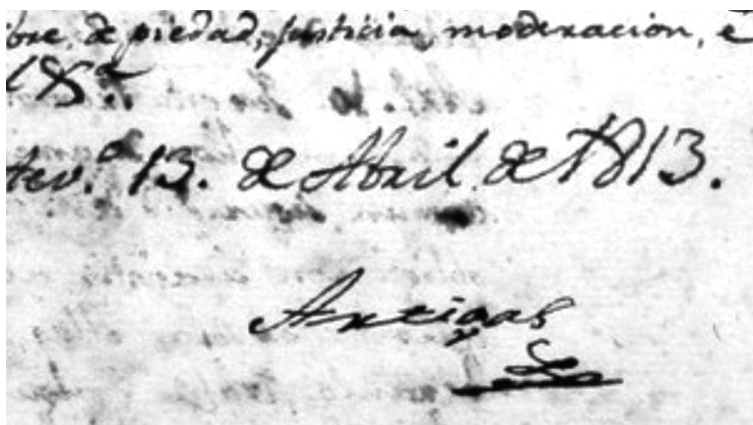 ibre, de piedad, justicia, moderacion, e
18ª.
tevº. 13. de Abril de 1813.
Artigas